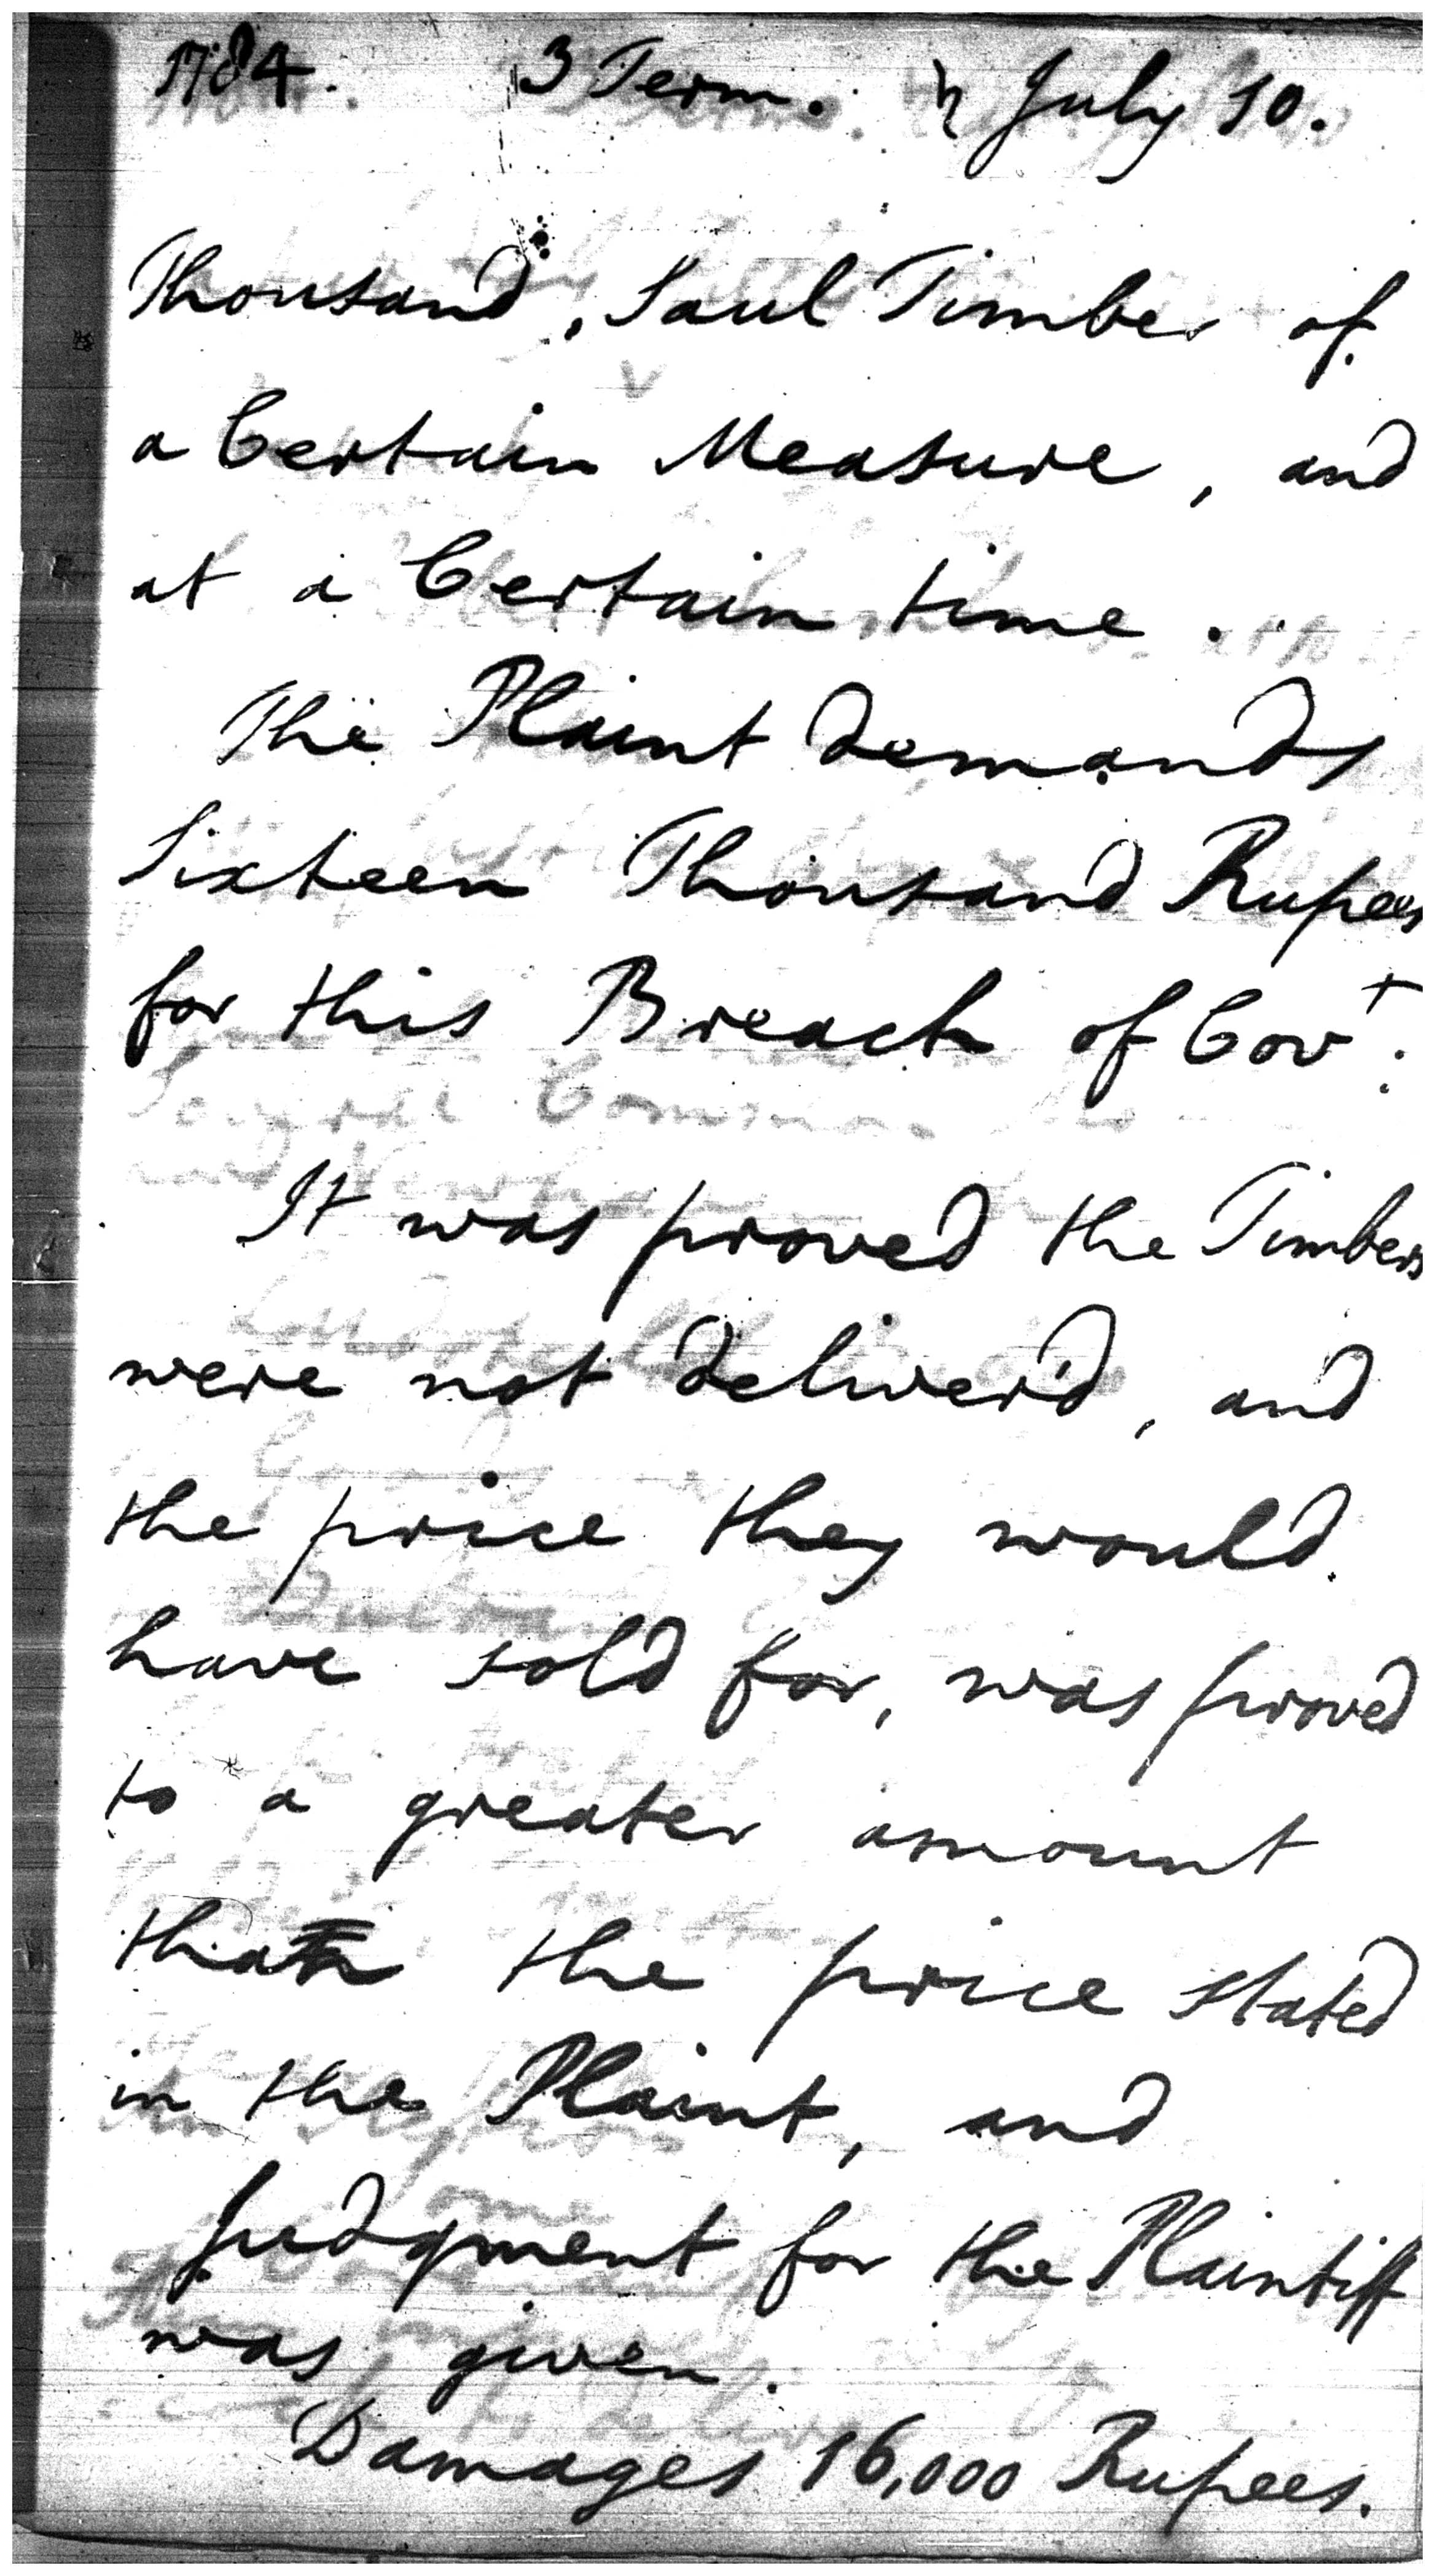 1784. 3 Term. ♄ July 10.
Thousand, Saul Timber of
a Certain Measure, and
at a Certain time.
The Plaint demands
Sixteen Thousand Rupees
for this Breach of Covt.
It was proved the Timbers
were not deliver'd, and
the price they would
have sold for, was proved
to a greater amount
than the price stated
in the Plaint, and
Judgment for the Plaintiff
was given.
Damages 16,000 Rupees.